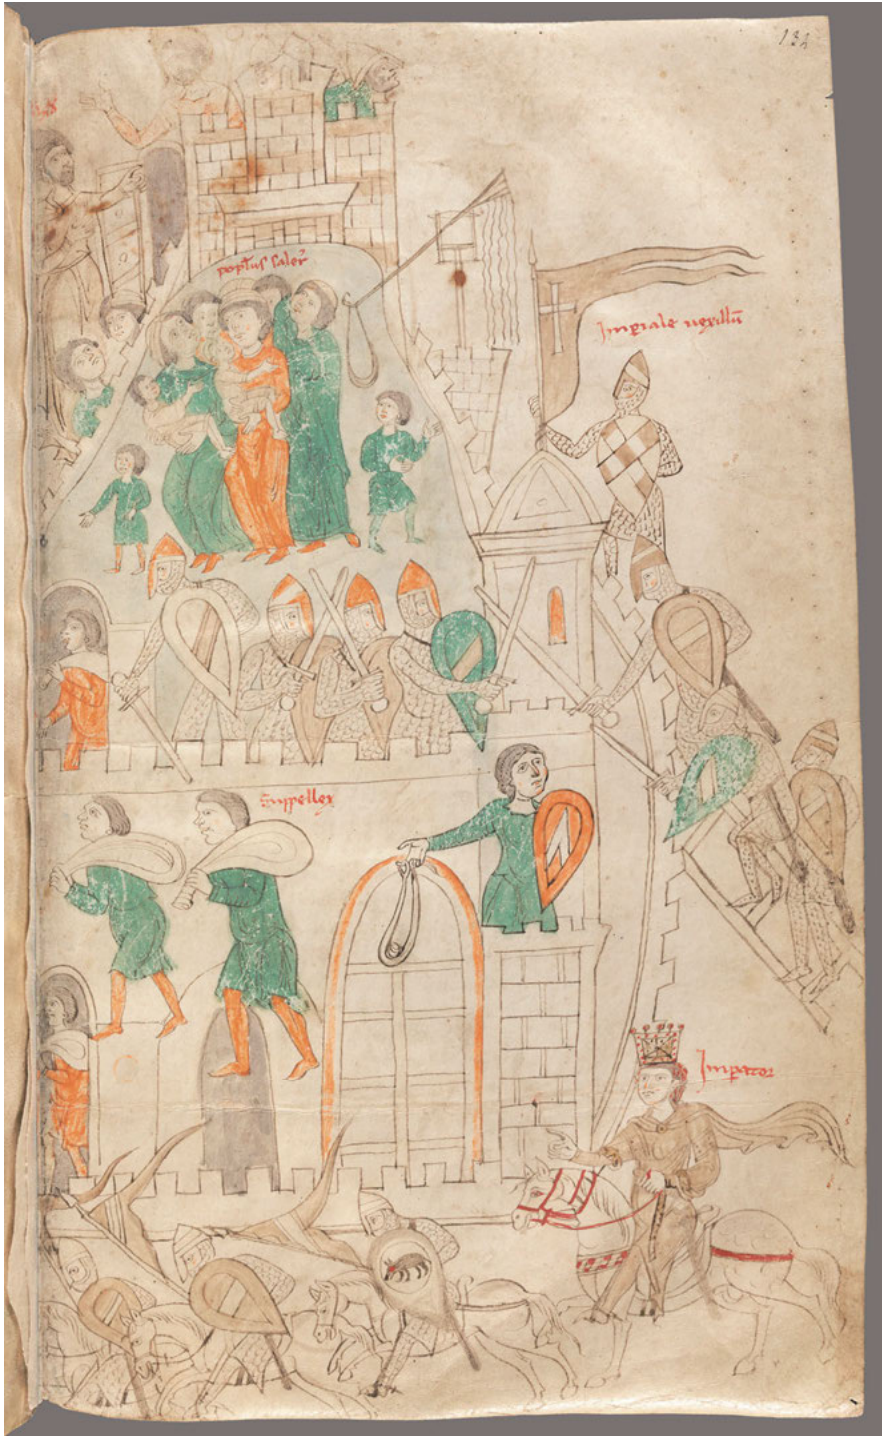 132
popl'us saler̄
Imp̱iale uexillū
Suppellex
Imp̱ator